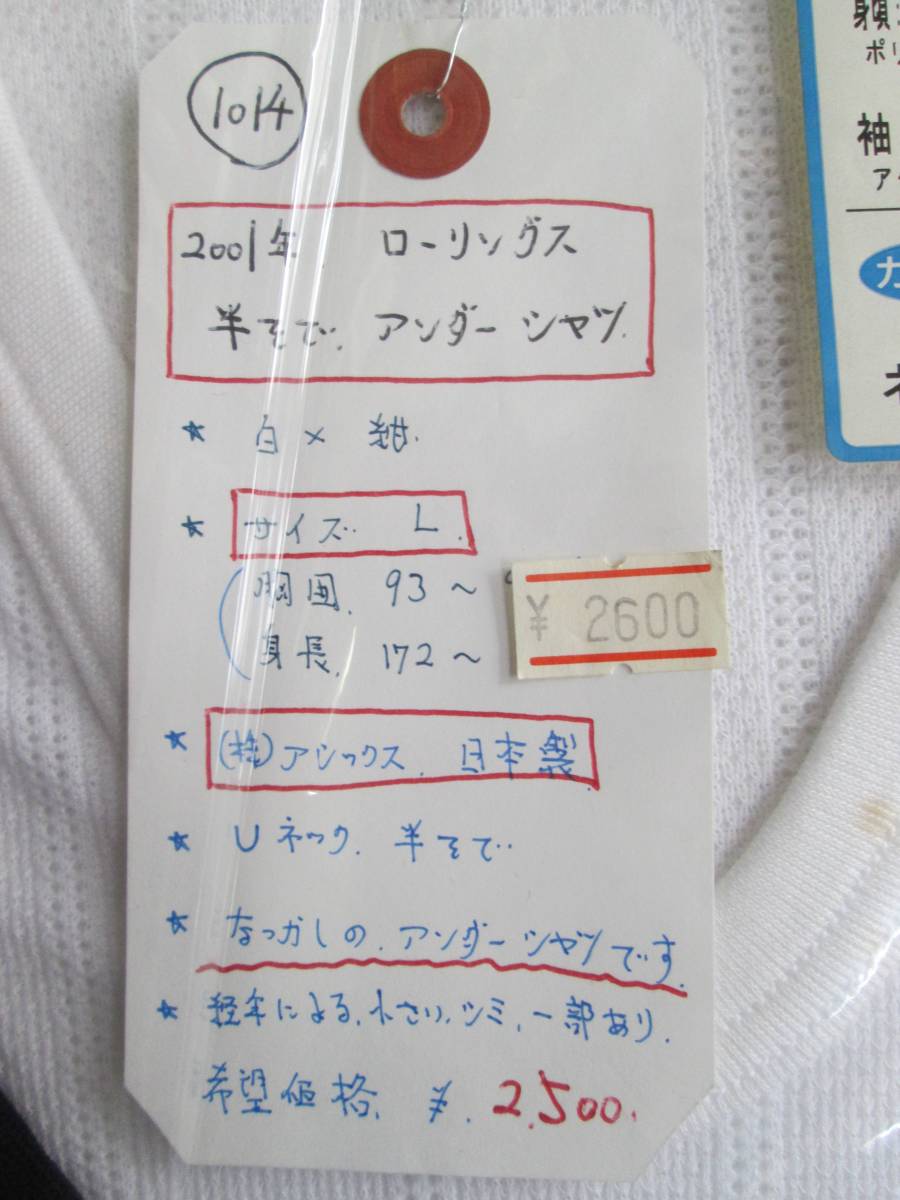 1014
2001年 ローリングス
半そで. アンダーシャツ.
★ 白×紺.
★ サイズ. L.
胴囲. 93～
¥2600
身長. 172～
★ (株)アシックス. 日本製
★ Uネック. 半そで.
★ なつかしの. アンダーシャツです.
★ 経年による. 小さい. シミ. 一部あり.
希望価格. ¥. 2,500.
身頃
ポリ
袖
ア
カ